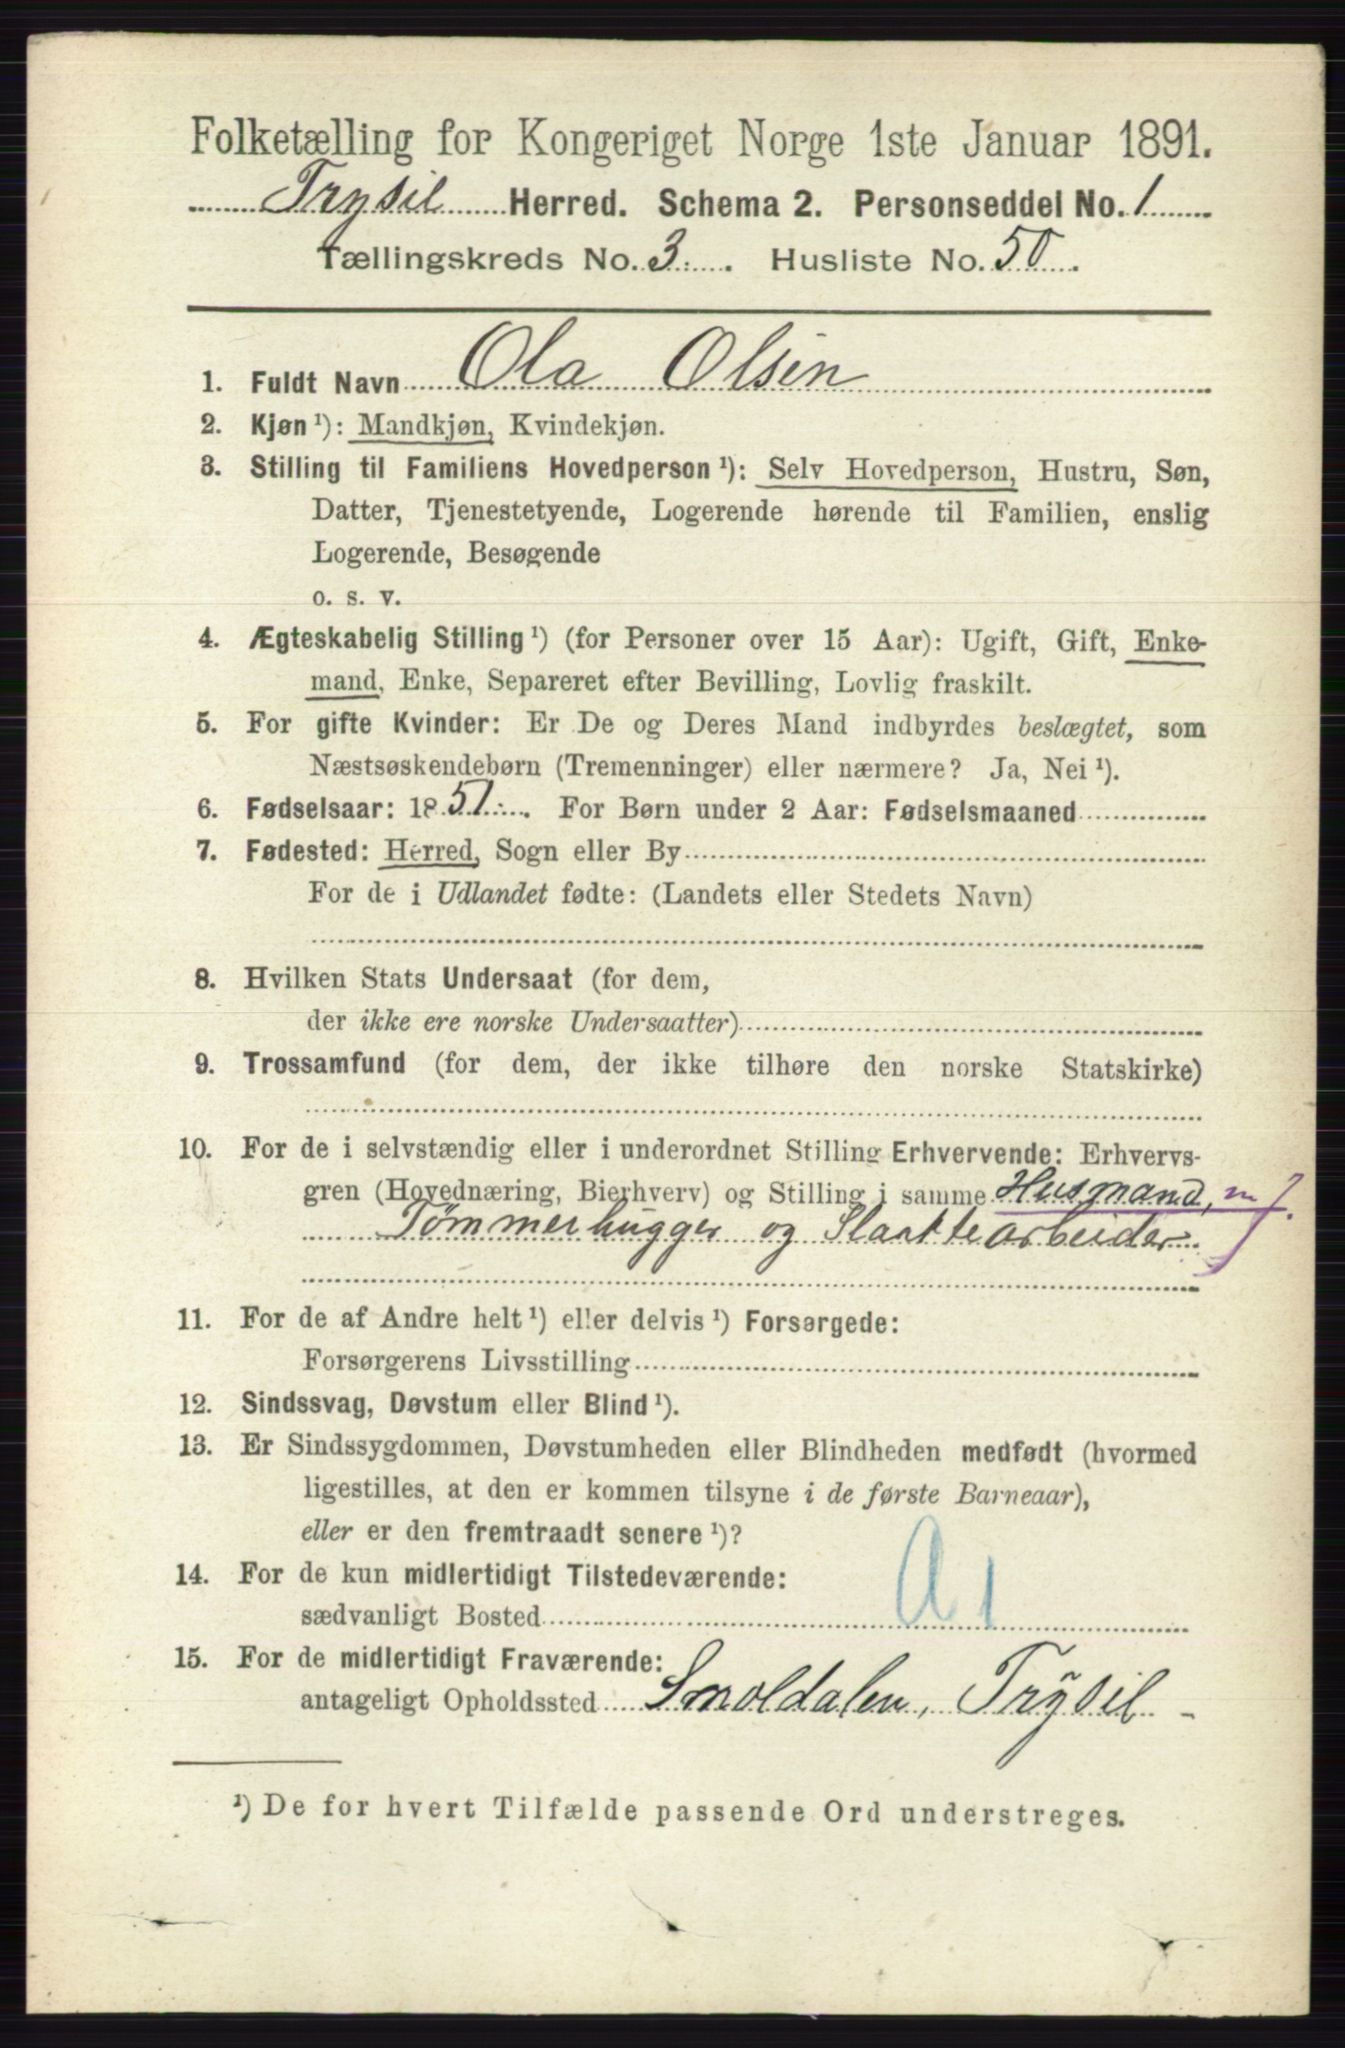 Folketælling for Kongeriget Norge 1ste Januar 1891.
Trysil Herred. Schema 2. Personseddel No. 1
Tællingskreds No. 3. Husliste No. 50.
1. Fuldt Navn Ola Olsen
2. Kjøn ¹): Mandkjøn, Kvindekjøn.
3. Stilling til Familiens Hovedperson ¹): Selv Hovedperson, Hustru, Søn,
Datter, Tjenestetyende, Logerende hørende til Familien, enslig
Logerende, Besøgende
o. s. v.
4. Ægteskabelig Stilling ¹) (for Personer over 15 Aar): Ugift, Gift, Enke-
mand, Enke, Separeret efter Bevilling, Lovlig fraskilt.
5. For gifte Kvinder: Er De og Deres Mand indbyrdes beslægtet, som
Næstsøskendebørn (Tremenninger) eller nærmere? Ja, Nei ¹).
6. Fødselsaar: 1851. For Børn under 2 Aar: Fødselsmaaned
7. Fødested: Herred, Sogn eller By
For de i Udlandet fødte: (Landets eller Stedets Navn)
8. Hvilken Stats Undersaat (for dem,
der ikke ere norske Undersaatter)
9. Trossamfund (for dem, der ikke tilhøre den norske Statskirke)
10. For de i selvstændig eller i underordnet Stilling Erhvervende: Erhvervs-
gren (Hovednæring, Bierhverv) og Stilling i samme Husmand, m J.
Tømmerhugger og Slaattearbeider.
11. For de af Andre helt ¹) eller delvis ¹) Forsørgede:
Forsørgerens Livsstilling
12. Sindssvag, Døvstum eller Blind ¹).
13. Er Sindssygdommen, Døvstumheden eller Blindheden medfødt (hvormed
ligestilles, at den er kommen tilsyne i de første Barneaar),
eller er den fremtraadt senere ¹)?
14. For de kun midlertidigt Tilstedeværende:
sædvanligt Bosted
A 1
15. For de midlertidigt Fraværende:
antageligt Opholdssted Smoldalen, Trysil
¹) De for hvert Tilfælde passende Ord understreges.